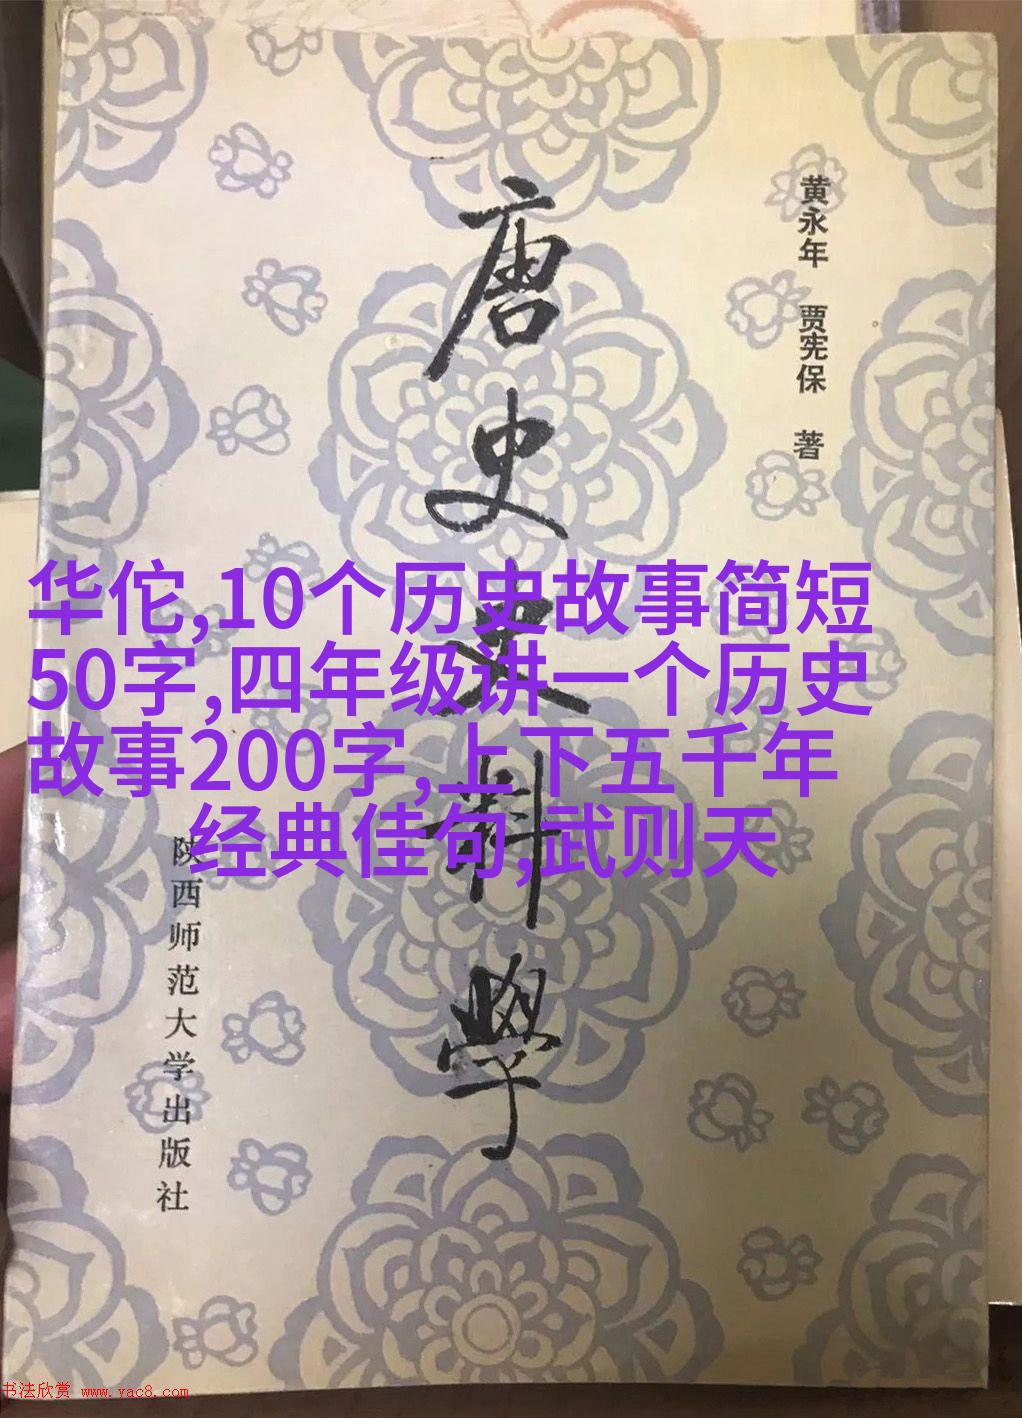 黄永年 贾宪保 著
唐史史料學
陕西师范大学出版社
华佗,10个历史故事简短
50字,四年级讲一个历史
故事200字,上下五千年
经典佳句,武则天
书法欣赏 www.yac8.com